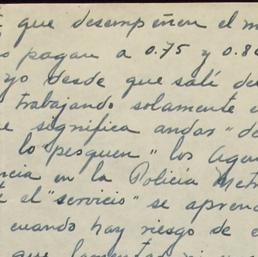 que desempeñen el m
pagan a 0.75 y 0.80
yo desde que salí de
trabajando solamente e
significa andar "de
lo pesquen" los Agen
ncia en la Policía Metr
el "servicio" se apren
cuando hay riesgo de e
que lamentar ni